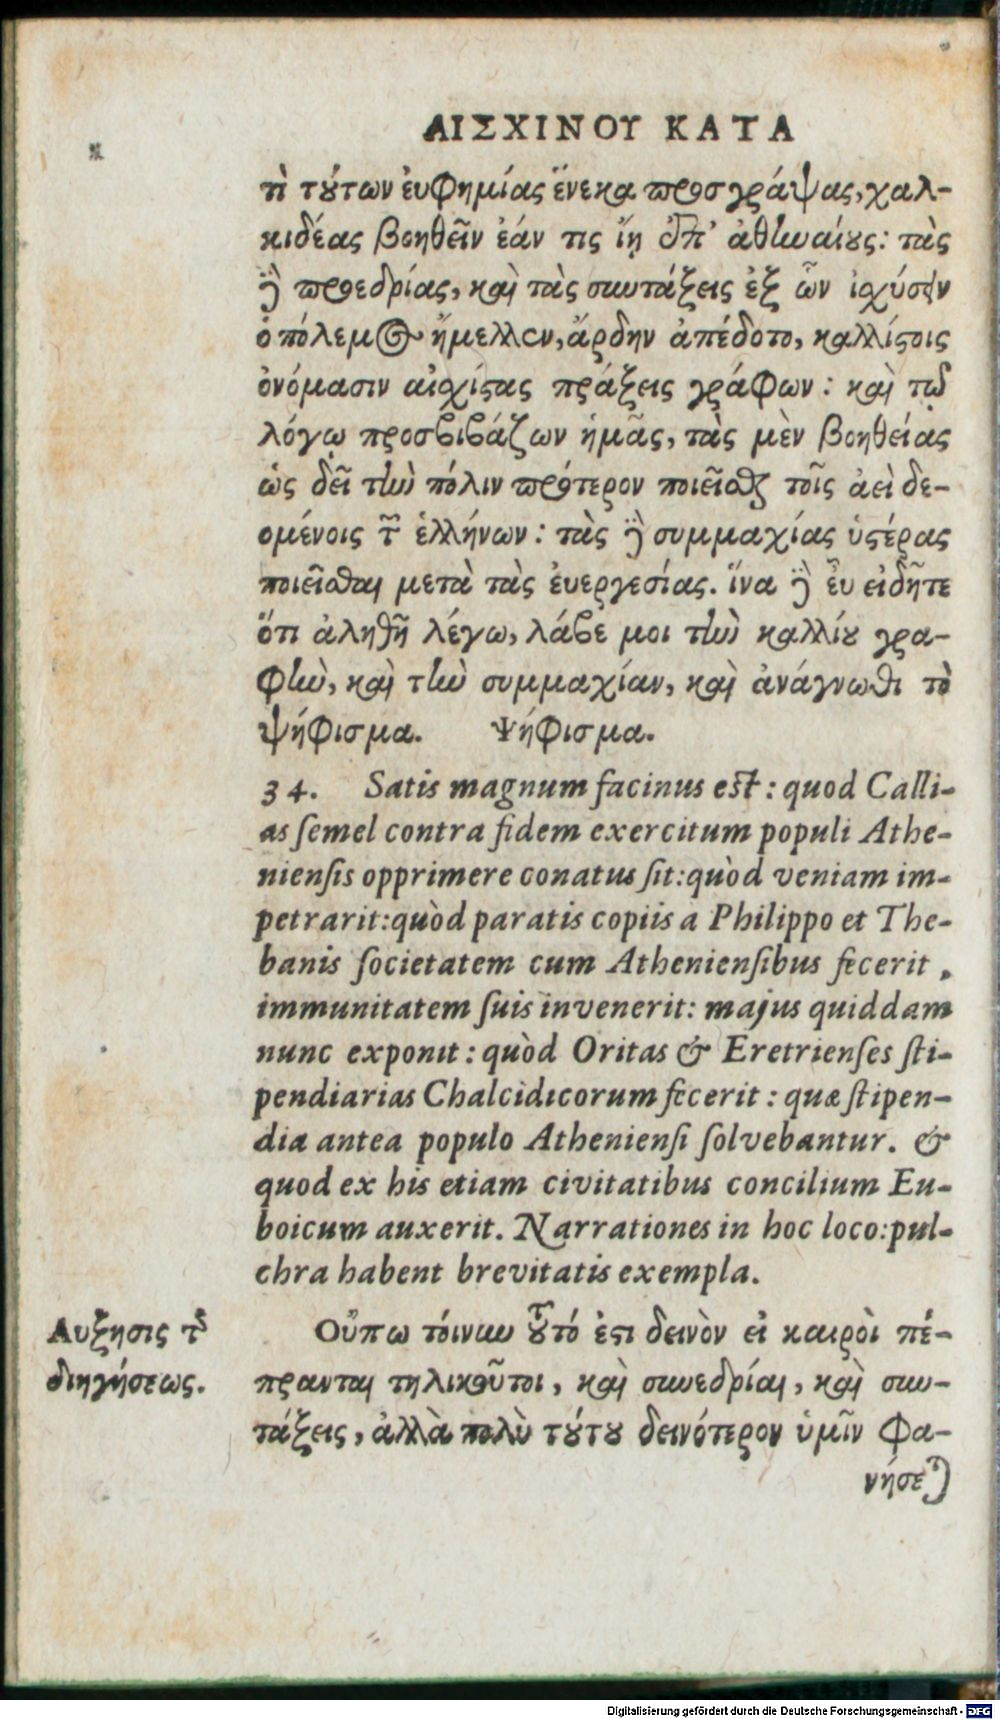 ΑΙΣΧΙΝΟΥ ΚΑΤΑ
τὶ τούτων ἐυφημίας ἕνεκα προσγράψας, χαλ-
κιδέας βοηθεῖν ἐάν τις ἴῃ ἐπ' ἀθηναίους: τὰς
δὲ προεδρίας, καὶ τὰς συντάξεις ἐξ ὧν ἰσχύσειν
ὁ πόλεμος ἤμελλεν, ἄρδην ἀπέδοτο, καλλίστοις
ὀνόμασιν αἰσχίστας πράξεις γράφων: καὶ τῷ
λόγῳ προσβιβάζων ἡμᾶς, τὰς μὲν βοηθείας
ὡς δεῖ τὴν πόλιν πρότερον ποιεῖσθαι τοῖς ἀεὶ δε-
ομένοις τῶν ἑλλήνων: τὰς δὲ συμμαχίας ὑστέρας
ποιεῖσθαι μετὰ τὰς ἐυεργεσίας. ἵνα δὲ ἐῦ εἰδῆτε
ὅτι ἀληθῆ λέγω, λάβε μοι τὴν καλλίου γρα-
φὴν, καὶ τὴν συμμαχίαν, καὶ ἀνάγνωθι τὸ
ψήφισμα. Ψήφισμα.
34. Satis magnum facinus est: quod Calli-
as semel contra fidem exercitum populi Athe-
niensis opprimere conatus sit: quòd veniam im-
petrarit: quòd paratis copiis a Philippo et The-
banis societatem cum Atheniensibus fecerit,
immunitatem suis invenerit: majus quiddam
nunc exponit: quòd Oritas & Eretrienses sti-
pendiarias Chalcidicorum fecerit: quæ stipen-
dia antea populo Atheniensi solvebantur. &
quod ex his etiam civitatibus concilium Eu-
boicum auxerit. Narrationes in hoc loco: pul-
chra habent brevitatis exempla.
Αυξησις τῆς
διηγήσεως.
Οὔπω τοίνυν τοῦτό ἐστι δεινὸν εἰ καιροὶ πέ-
πρανται τηλικοῦτοι, καὶ συνεδρίαι, καὶ συν-
τάξεις, ἀλλὰ πολὺ τούτου δεινότερον ὑμῖν φα-
νήσεται
Digitalisierung gefördert durch die Deutsche Forschungsgemeinschaft - DFG